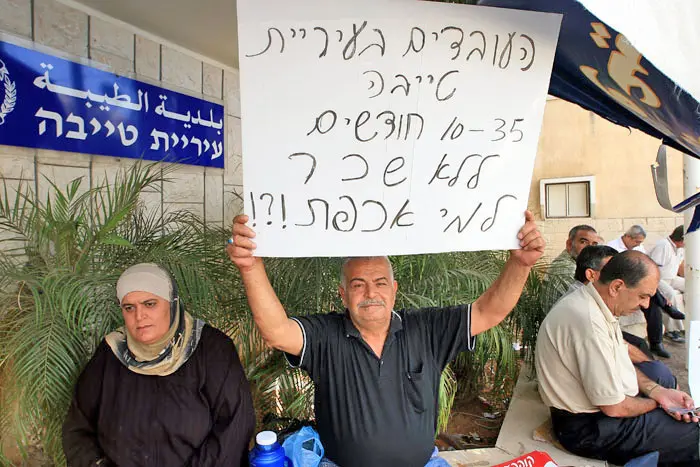 بلدية الطيبة
עיריית טייבה
העובדים בעיריית
טייבה
10-35 חודשים
ללא שכר
למי אכפת !?!